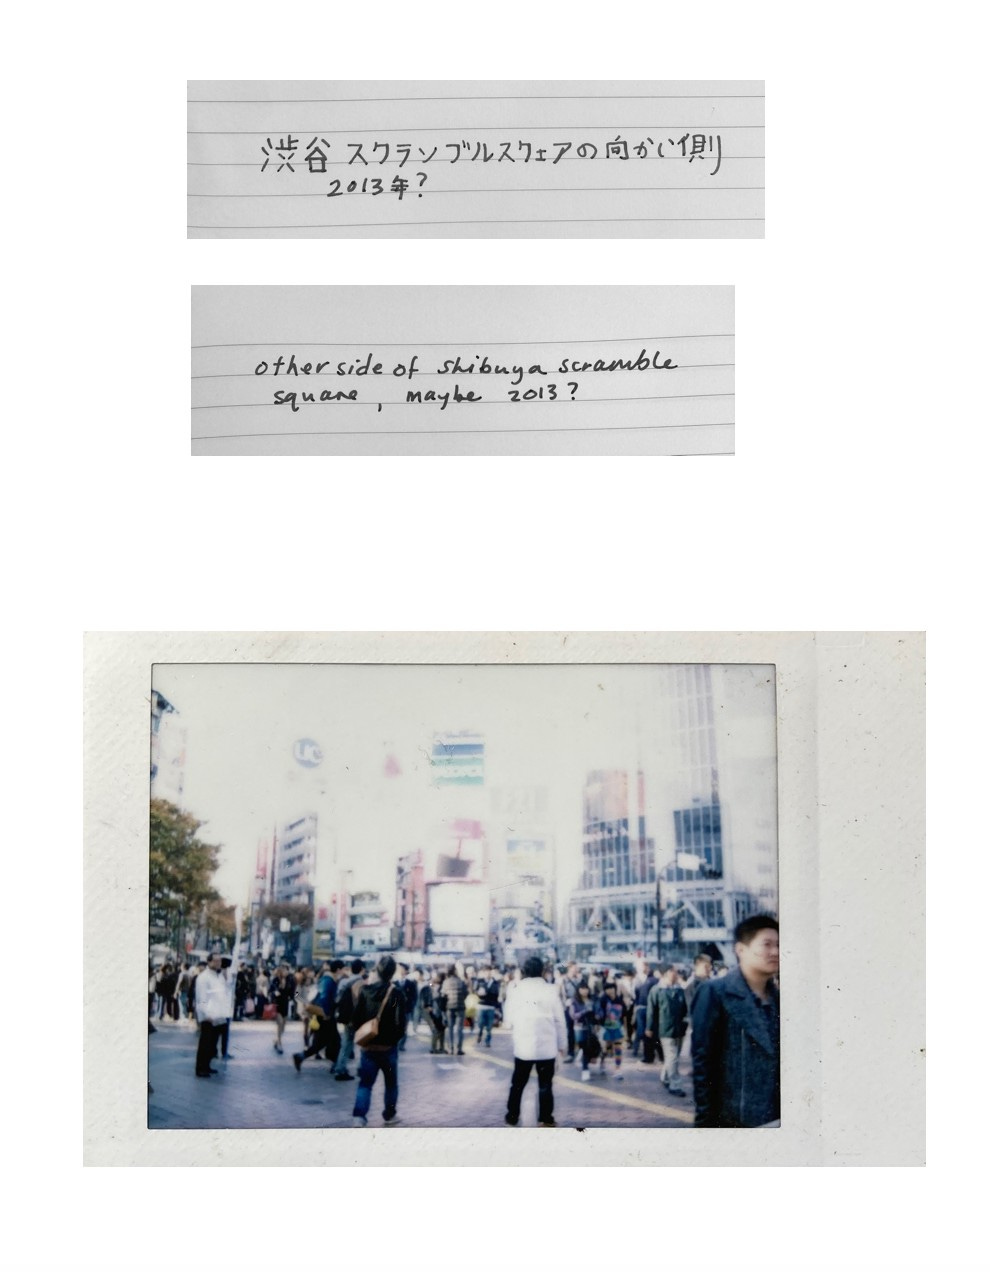 渋谷 スクランブルスクェアの向かい側
2013年?
other side of shibuya scramble
square, maybe 2013?
UC